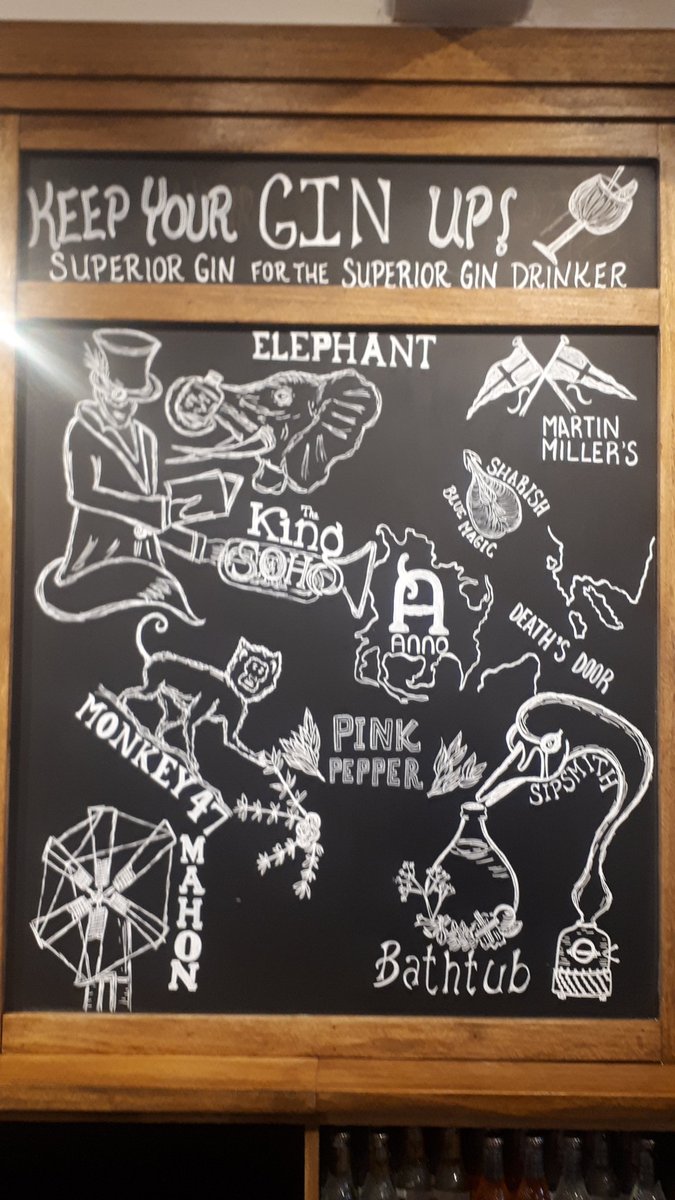 KEEP YOUR GIN UP!
SUPERIOR GIN FOR THE SUPERIOR GIN DRINKER
ELEPHANT
MARTIN
MILLER'S
SHARISH
BLUE MAGIC
The
King
SOHO
A
ANNO
DEATH'S DOOR
PINK
PEPPER
MONKEY 47
SIPSMITH
MAHON
Bathtub